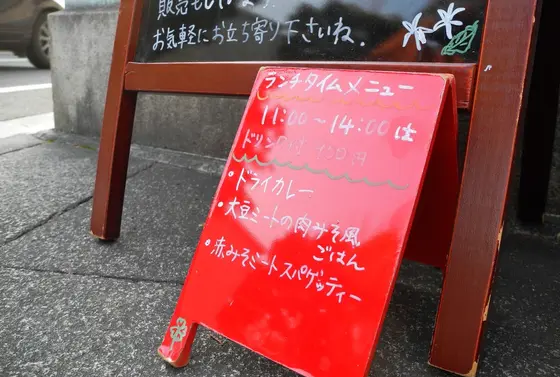 販売もしています。
お気軽にお立ち寄り下さいね.
ランチタイムメニュー
11:00〜14:00は
ドリンク
円
・ドライカレー
・大豆ミートの肉みそ風
ごはん
・赤みそミートスパゲッティー